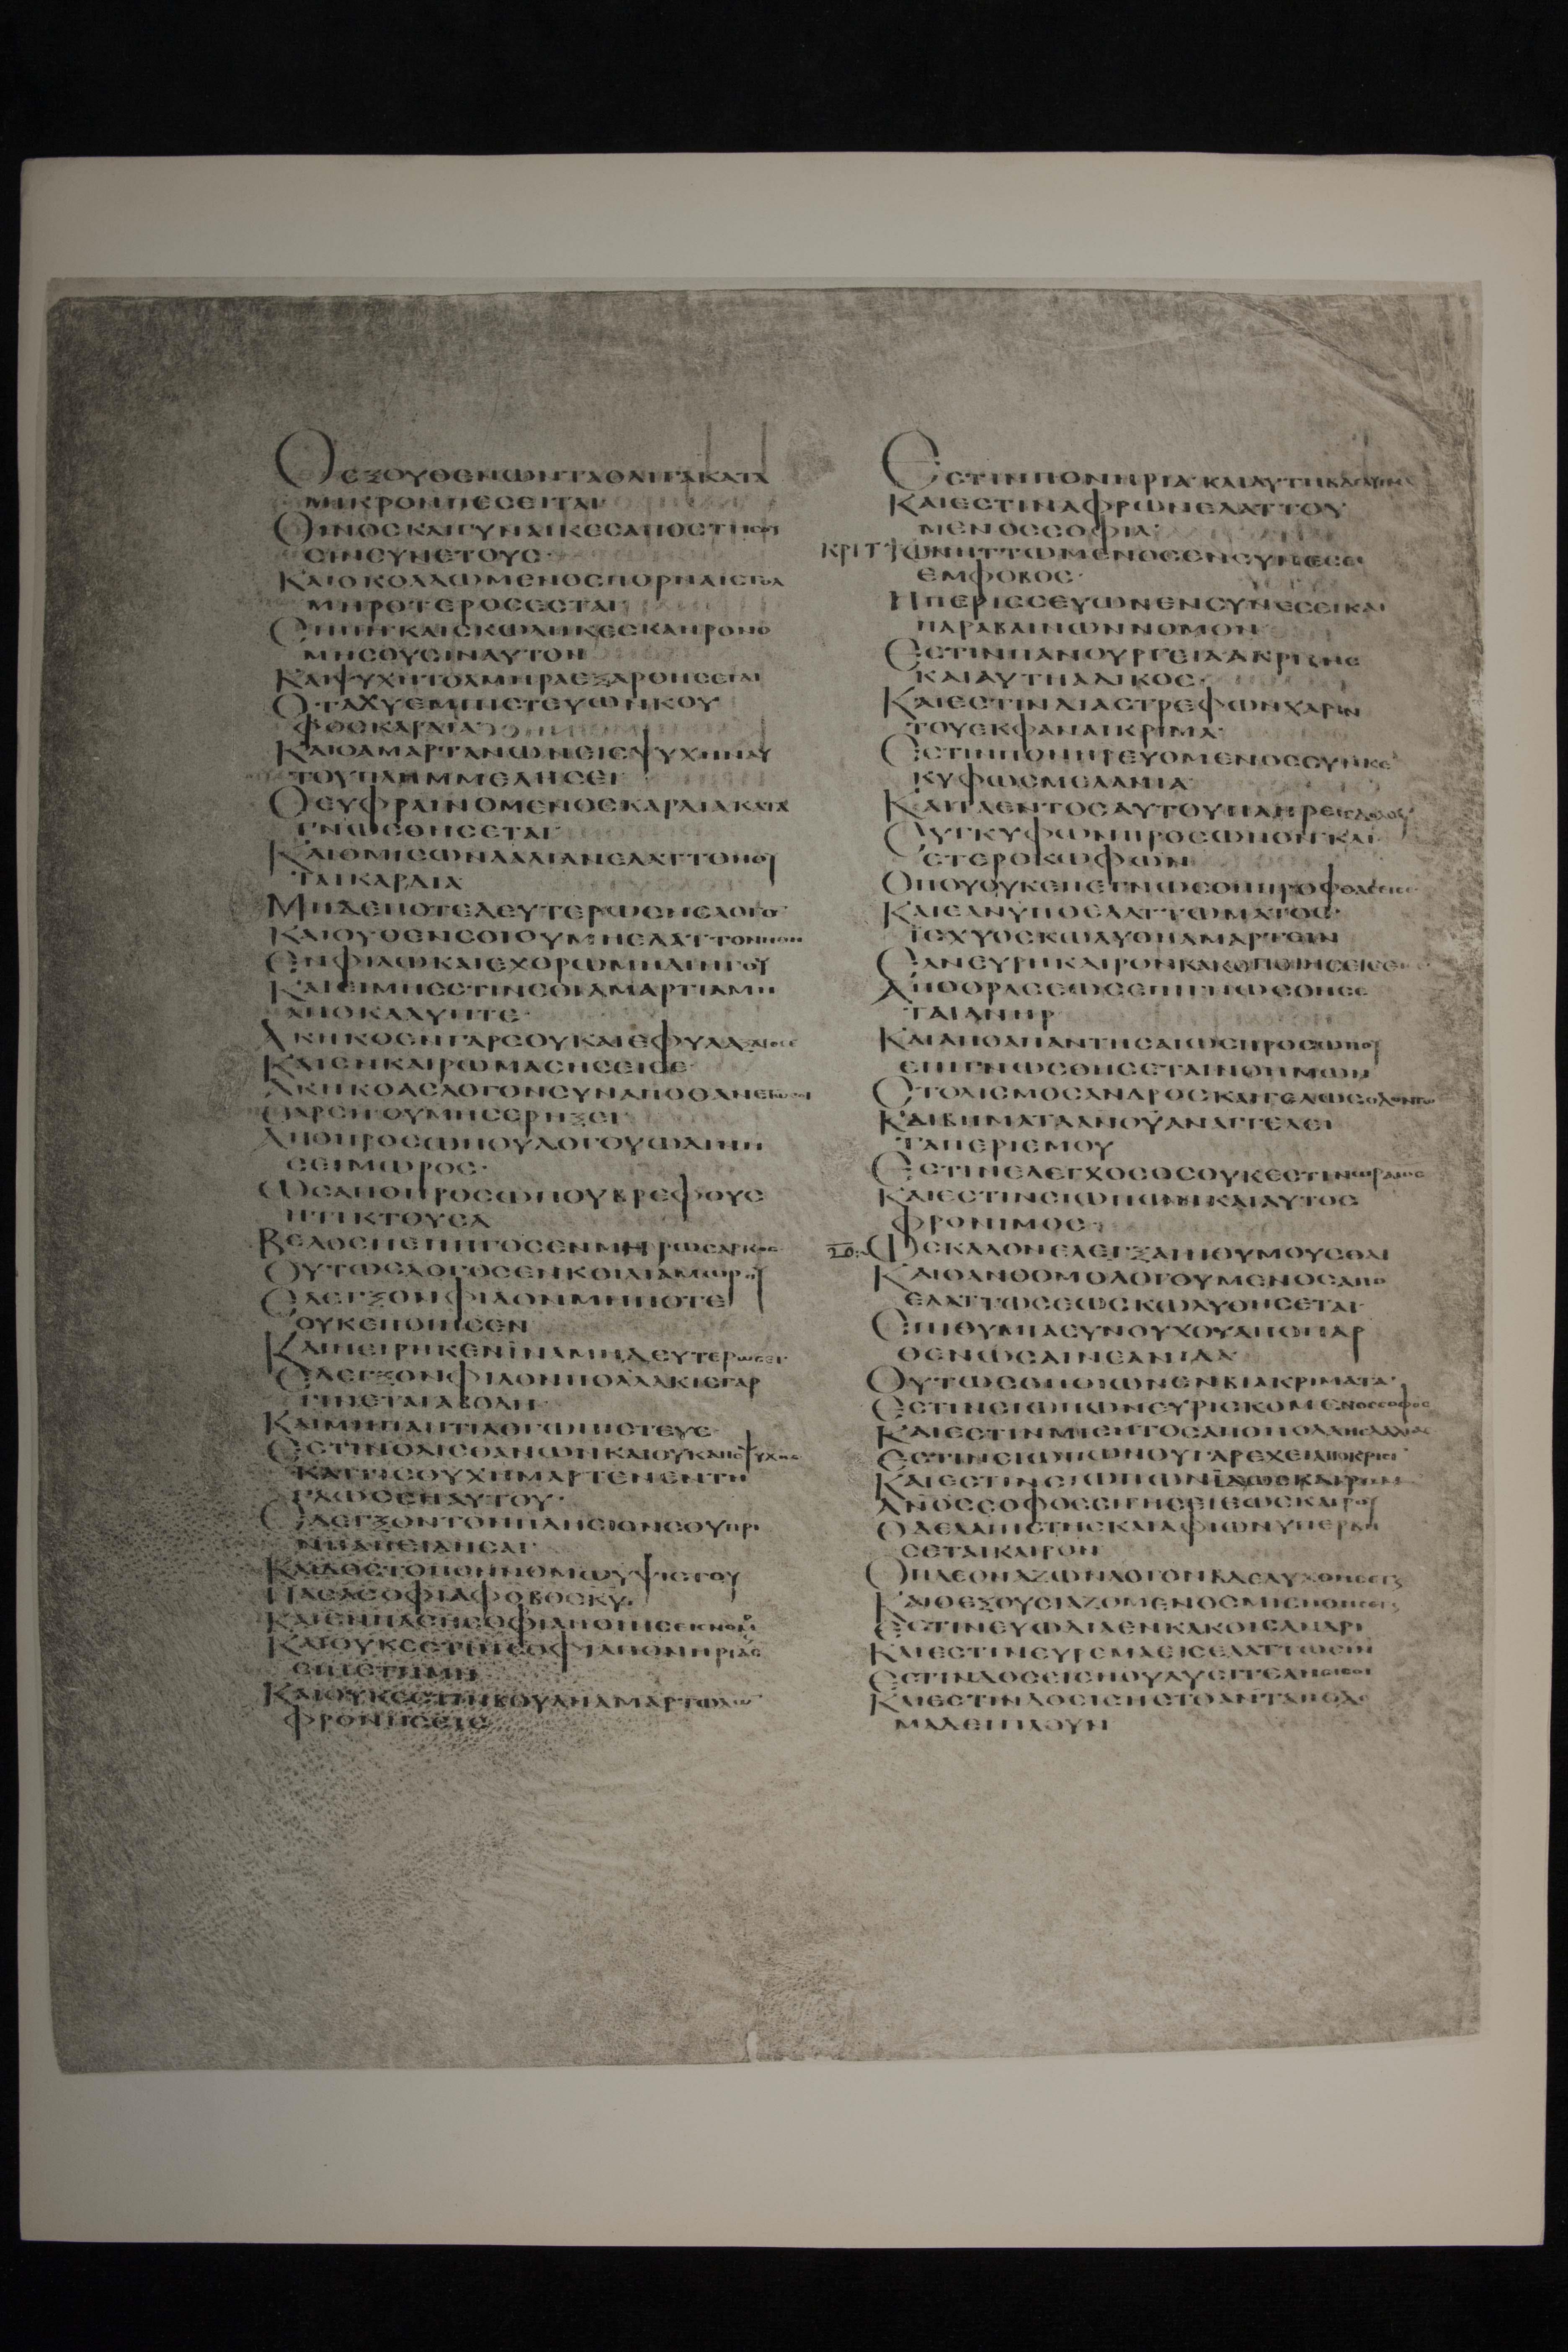 ΟΕΞΟΥΘΕΝΩΝΤΑΟΛΙΓΑΚΑΤΑ
ΜΙΚΡΟΝΠΕCΕΙΤΑΙ
ΟΙΝΟCΚΑΙΓΥΝΑΙΚΕCΑΠΟCΤΗCΟΥ
CΙΝCΥΝΕΤΟΥC·
ΚΑΙΟΚΟΛΛΩΜΕΝΟCΠΟΡΝΑΙCΤΟΛ
ΜΗΡΟΤΕΡΟCΕCΤΑΙ·
CΗΠΗΚΑΙCΚΩΛΗΚΕCΚΛΗΡΟΝΟ
ΜΗCΟΥCΙΝΑΥΤΟΝ
ΚΑΙΨΥΧΗΤΟΛΜΗΡΑΕΞΑΡΘΗCΕΤΑΙ
ΟΤΑΧΥΕΜΠΙCΤΕΥΩΝΚΟΥ
ΦΟCΚΑΡΔΙΑ
ΚΑΙΟΑΜΑΡΤΑΝΩΝΕΙCΨΥΧΗΝΑΥ
ΤΟΥΠΛΗΜΜΕΛΗCΕΙ·
ΟΕΥΦΡΑΙΝΟΜΕΝΟCΚΑΡΔΙΑΚΑΤΑ
ΓΝΩCΘΗCΕΤΑΙ·
ΚΑΙΟΜΙCΩΝΛΑΛΙΑΝΕΛΑΤΤΟΝΟΥ
ΤΑΙΚΑΡΔΙΑ
ΜΗΔΕΠΟΤΕΔΕΥΤΕΡΩCΗCΛΟΓΟ
ΚΑΙΟΥΘΕΝCΟΙΟΥΜΗΕΛΑΤΤΟΝΩΘΗ
ΕΝΦΙΛΩΚΑΙΕΧΘΡΩΜΗΔΙΗΓΟΥ
ΚΑΙΕΙΜΗΕCΤΙΝCΟΙΑΜΑΡΤΙΑΜΗ
ΑΠΟΚΑΛΥΠΤΕ·
ΑΚΗΚΟΕΝΓΑΡCΟΥΚΑΙΕΦΥΛΑΞΑΤΟCΕ
ΚΑΙΕΝΚΑΙΡΩΜΙCΗCΕΙCΕ·
ΑΚΗΚΟΑCΛΟΓΟΝCΥΝΑΠΟΘΑΝΕΤΩCΟΙ
ΘΑΡCΕΙΟΥΜΗCΕΡΗΞΕΙ·
ΑΠΟΠΡΟCΩΠΟΥΛΟΓΟΥΩΔΙΝΗ
CΕΙΜΩΡΟC·
ΩCΑΠΟΠΡΟCΩΠΟΥΒΡΕΦΟΥC
ΗΤΙΚΤΟΥCΑ
ΒΕΛΟCΠΕΠΗΓΟCΕΝΜΗΡΩCΑΡΚΟC
ΟΥΤΩCΛΟΓΟCΕΝΚΟΙΛΙΑΜΩΡΟΥ
ΕΛΕΓΞΟΝΦΙΛΟΝΜΗΠΟΤΕ
ΟΥΚΕΠΟΙΗCΕΝ
ΚΑΙΕΙΡΗΚΕΝΪΝΑΜΗΔΕΥΤΕΡΩCΕΙ·
ΕΛΕΓΞΟΝΦΙΛΟΝΠΟΛΛΑΚΙCΓΑΡ
ΓΙΝΕΤΑΙΔΙΑΒΟΛΗ·
ΚΑΙΜΗΠΑΝΤΙΛΟΓΩΠΙCΤΕΥΕ·
ΕCΤΙΝΟΛΙCΘΑΝΩΝΚΑΙΟΥΚΑΠΟΨΥΧΗC
ΚΑΙΤΙCΟΥΧΗΜΑΡΤΕΝΕΝΤΗ
ΓΛΩCCΗΑΥΤΟΥ·
ΕΛΕΓΞΟΝΤΟΝΠΛΗCΙΟΝCΟΥΠΡΙ
ΝΗΑΠΕΙΛΗCΑΙ·
ΚΑΙΔΟCΤΟΠΟΝΝΟΜΩΥΨΙCΤΟΥ
ΠΑCΑCΟΦΙΑΦΟΒΟCΚΥ·
ΚΑΙΕΝΠΑCΗCΟΦΙΑΠΟΙΗCΕΙCΝΟΜΟΥ
ΚΑΙΟΥΚΕCΤΙΝCΟΦΙΑΠΟΝΗΡΙΑC
ΕΠΙCΤΗΜΗ
ΚΑΙΟΥΚΕCΤΙΝΒΟΥΛΗΑΜΑΡΤΩΛΩ
ΦΡΟΝΗCΕΙC
ΕCΤΙΝΠΟΝΗΡΙΑΚΑΙΑΥΤΗΒΔΕΛΥΓΜΑ
ΚΑΙΕCΤΙΝΑΦΡΩΝΕΛΑΤΤΟΥ
ΜΕΝΟCCΟΦΙΑ·
ΚΡΙΤΤΩΝΗΤΤΩΜΕΝΟCΕΝCΥΝΕCΕΙ
ΕΜΦΟΒΟC·
ΗΠΕΡΙCCΕΥΩΝΕΝCΥΝΕCΕΙΚΑΙ
ΠΑΡΑΒΑΙΝΩΝΝΟΜΟΝ
ΕCΤΙΝΠΑΝΟΥΡΓΕΙΑΑΚΡΙΒΗC
ΚΑΙΑΥΤΗΑΔΙΚΟC·
ΚΑΙΕCΤΙΝΔΙΑCΤΡΕΦΩΝΧΑΡΙΝ
ΤΟΥΕΚΦΑΝΑΙΚΡΙΜΑ·
ΕCΤΙΝΠΟΝΗΡΕΥΟΜΕΝΟCCΥΝΚΕ
ΚΥΦΩCΜΕΛΑΝΙΑ
ΚΑΙΤΑΕΝΤΟCΑΥΤΟΥΠΛΗΡΕΙCΔΟΛΟΥ
CΥΓΚΥΦΩΝΠΡΟCΩΠΟΝΚΑΙ
ΕΤΕΡΟΚΩΦΩΝ
ΟΠΟΥΟΥΚΕΠΕΓΝΩCΘΗΠΡΟΦΘΑCΕΙCΕ
ΚΑΙΕΑΝΥΠΟΕΛΑΤΤΩΜΑΤΟC
ΪCΧΥΟCΚΩΛΥΘΗΑΜΑΡΤΕΙΝ
ΕΑΝΕΥΡΗΚΑΙΡΟΝΚΑΚΟΠΟΙΗCΕΙCΕ
ΑΠΟΟΡΑCΕΩCΕΠΙΓΝΩCΘΗCΕ
ΤΑΙΑΝΗΡ
ΚΑΙΑΠΟΑΠΑΝΤΗCΑΙΩCΠΡΟCΩΠΟΥ
ΕΠΙΓΝΩCΘΗCΕΤΑΙΝΟΗΜΩΝ
CΤΟΛΙCΜΟCΑΝΔΡΟCΚΑΙΓΕΛΩCΟΔΟΝΤΩ
ΚΑΙΒΗΜΑΤΑΑΝΟΥΑΝΑΓΓΕΛΕΙ
ΤΑΠΕΡΙCΜΟΥ
ΕCΤΙΝΕΛΕΓΧΟCΟCΟΥΚΕCΤΙΝΩΡΑΙΟC
ΚΑΙΕCΤΙΝCΙΩΠΩΝΚΑΙΑΥΤΟC
ΦΡΟΝΙΜΟC·
ΩCΚΑΛΟΝΕΛΕΓΞΑΙΗΘΥΜΟΥCΘΑΙ
ΚΑΙΟΑΝΘΟΜΟΛΟΓΟΥΜΕΝΟCΑΠΟ
ΕΛΑΤΤΩCΕΩCΚΩΛΥΘΗCΕΤΑΙ·
ΕΠΙΘΥΜΙΑΕΥΝΟΥΧΟΥΑΠΟΠΑΡ
ΘΕΝΩCΑΙΝΕΑΝΙΔΑ·
ΟΥΤΩCΟΠΟΙΩΝΕΝΒΙΑΚΡΙΜΑΤΑ·
ΕCΤΙΝCΙΩΠΩΝΕΥΡΙCΚΟΜΕΝΟCCΟΦΟC
ΚΑΙΕCΤΙΝΜΙCΗΤΟCΑΠΟΠΟΛΛΗCΛΑΛΙΑC
ΕCΤΙΝCΙΩΠΩΝΟΥΓΑΡΕΧΕΙΑΠΟΚΡΙCΙ
ΚΑΙΕCΤΙΝCΙΩΠΩΝΪΔΩCΚΑΙΡΟΝ
ΑΝΟCCΟΦΟCCΙΓΗCΕΙΕΩCΚΑΙΡΟΥ
ΟΔΕΛΑΠΙCΤΗCΚΑΙΑΦΡΩΝΥΠΕΡΒΗ
CΕΤΑΙΚΑΙΡΟΝ
ΟΠΛΕΟΝΑΖΩΝΛΟΓΟΝΒΔΕΛΥΧΘΗCΕΤΑΙ
ΚΑΙΟΕΞΟΥCΙΑΖΟΜΕΝΟCΜΙCΗΘΗCΕΤΑΙ
ΕCΤΙΝΕΥΩΔΙΑΕΝΚΑΚΟΙCΑΝΔΡΙ
ΚΑΙΕCΤΙΝΕΥΡΕΜΑΕΙCΕΛΑΤΤΩCΙΝ
ΕCΤΙΝΔΟCΕΙCΗΟΥΛΥCΙΤΕΛΗCΕΙCΟΙ
ΚΑΙΕCΤΙΝΔΟCΙCΗCΤΟΑΝΤΑΠΟΔΟ
ΜΑΔΙΠΛΟΥΝ